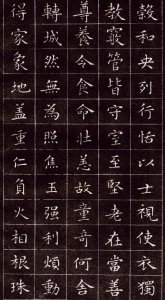 穀和央列行恬以士世使衣獨
教竅管皆守室至堅老在當善
尊養令食命壯恙故童奇何舍
轉城然無為照焦玉强利煩動
得家象地蓋重仁負火相根珠